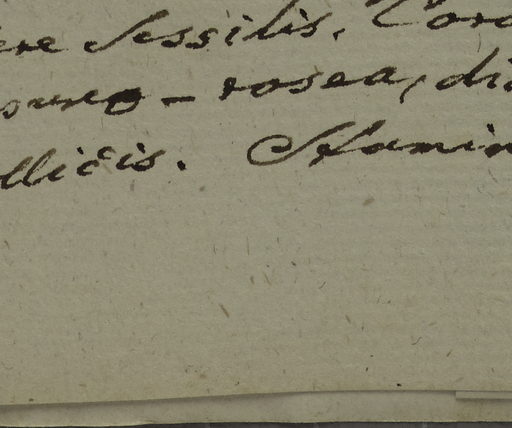 ere Sessilis. Coro
pureo - rosea, di
llicis. Stamin